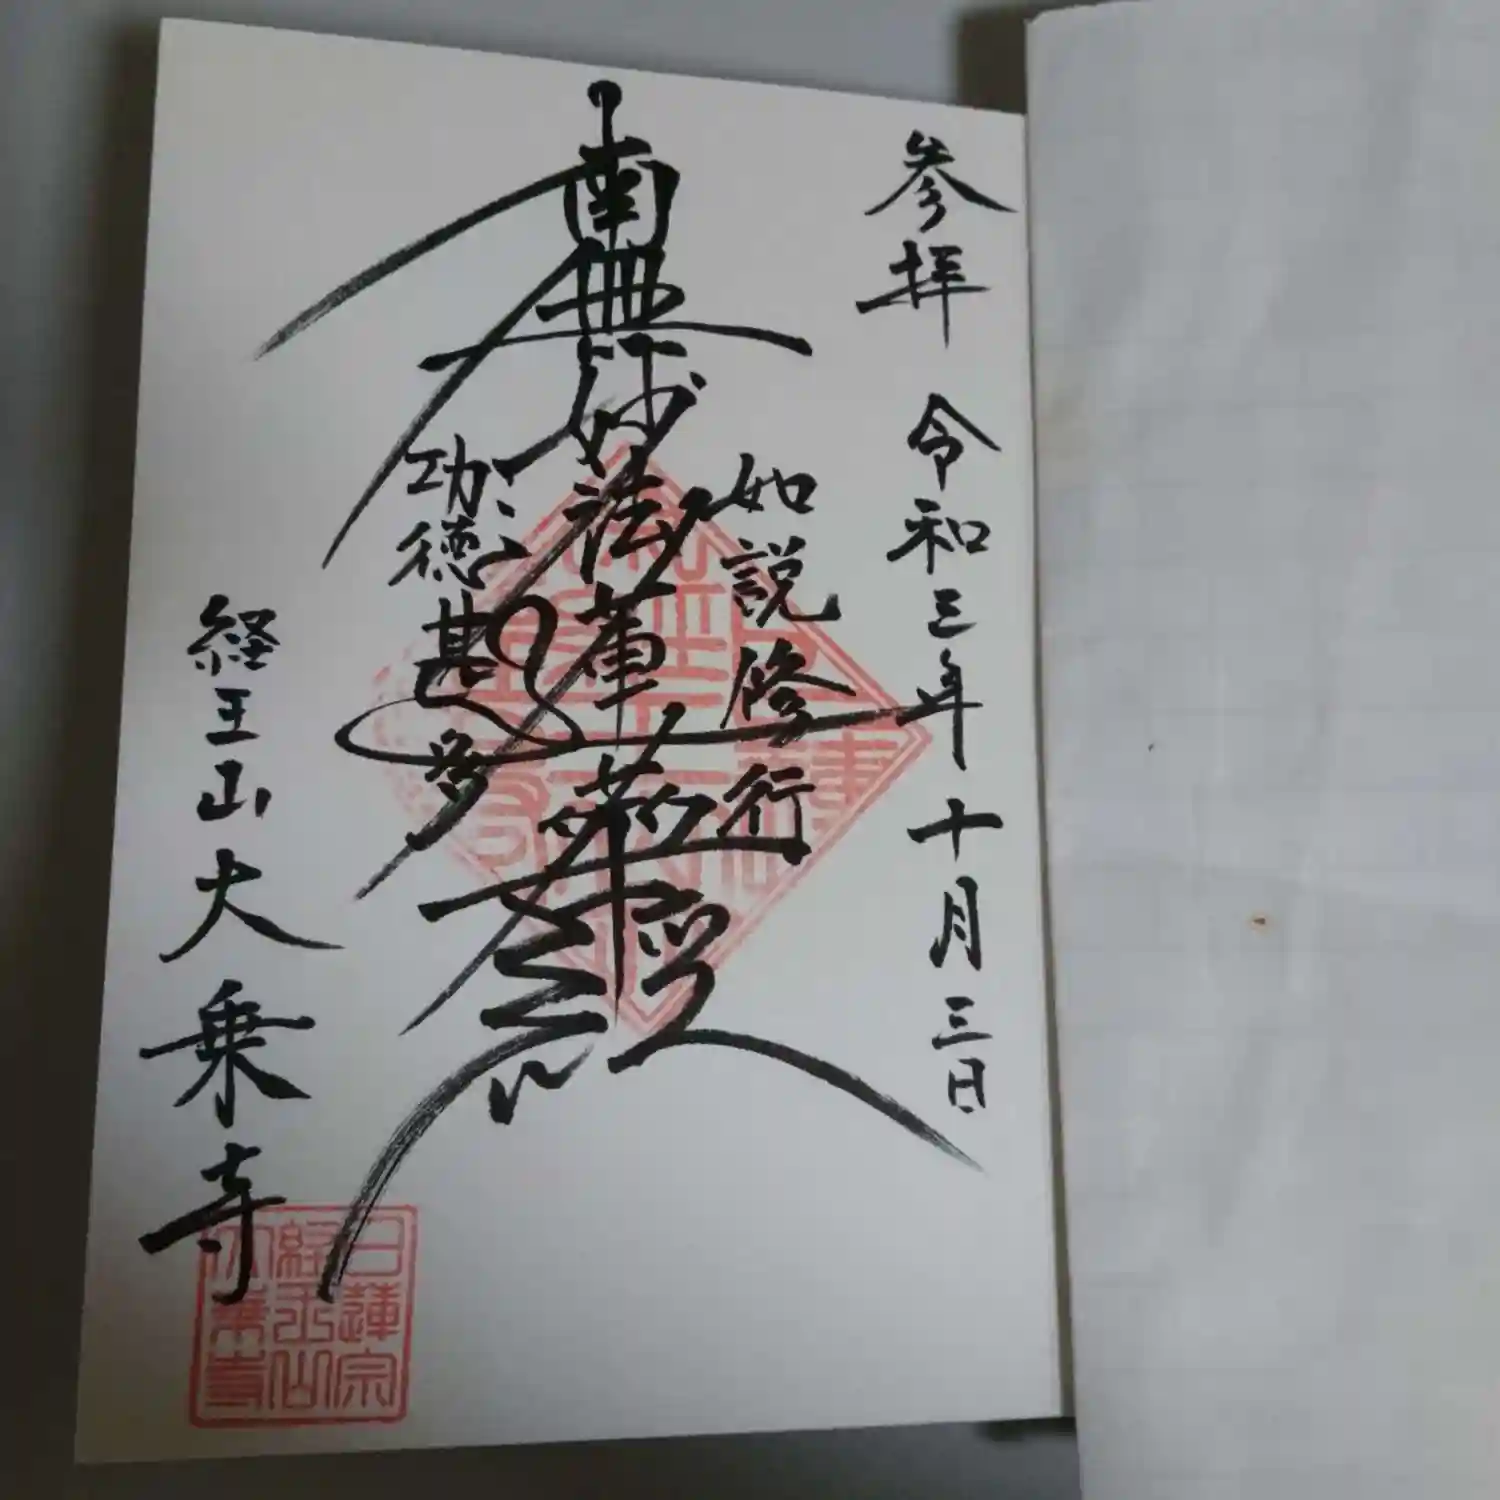 参拝 令和三年十月三日
如説修行
南無妙法蓮華経
功徳甚多
経王山大乗寺
日蓮宗
経王山
大乗寺